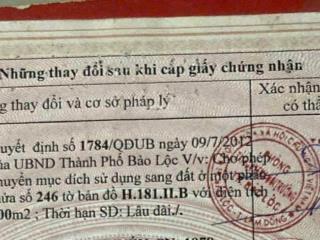 Những thay đổi sau khi cấp giấy chứng nhận
g thay đổi và cơ sở pháp lý
Xác nhận
có thẩ
uyết định số 1784/QDUB ngày 09/7/2012
ủa UBND Thành Phố Bảo Lộc V/v: Cho phép
huyển mục đích sử dụng sang đất ở một phần
hửa số 246 tờ bản đồ H.181.II.B với diện tích
00m2 ; Thời hạn SD: Lâu dài./.